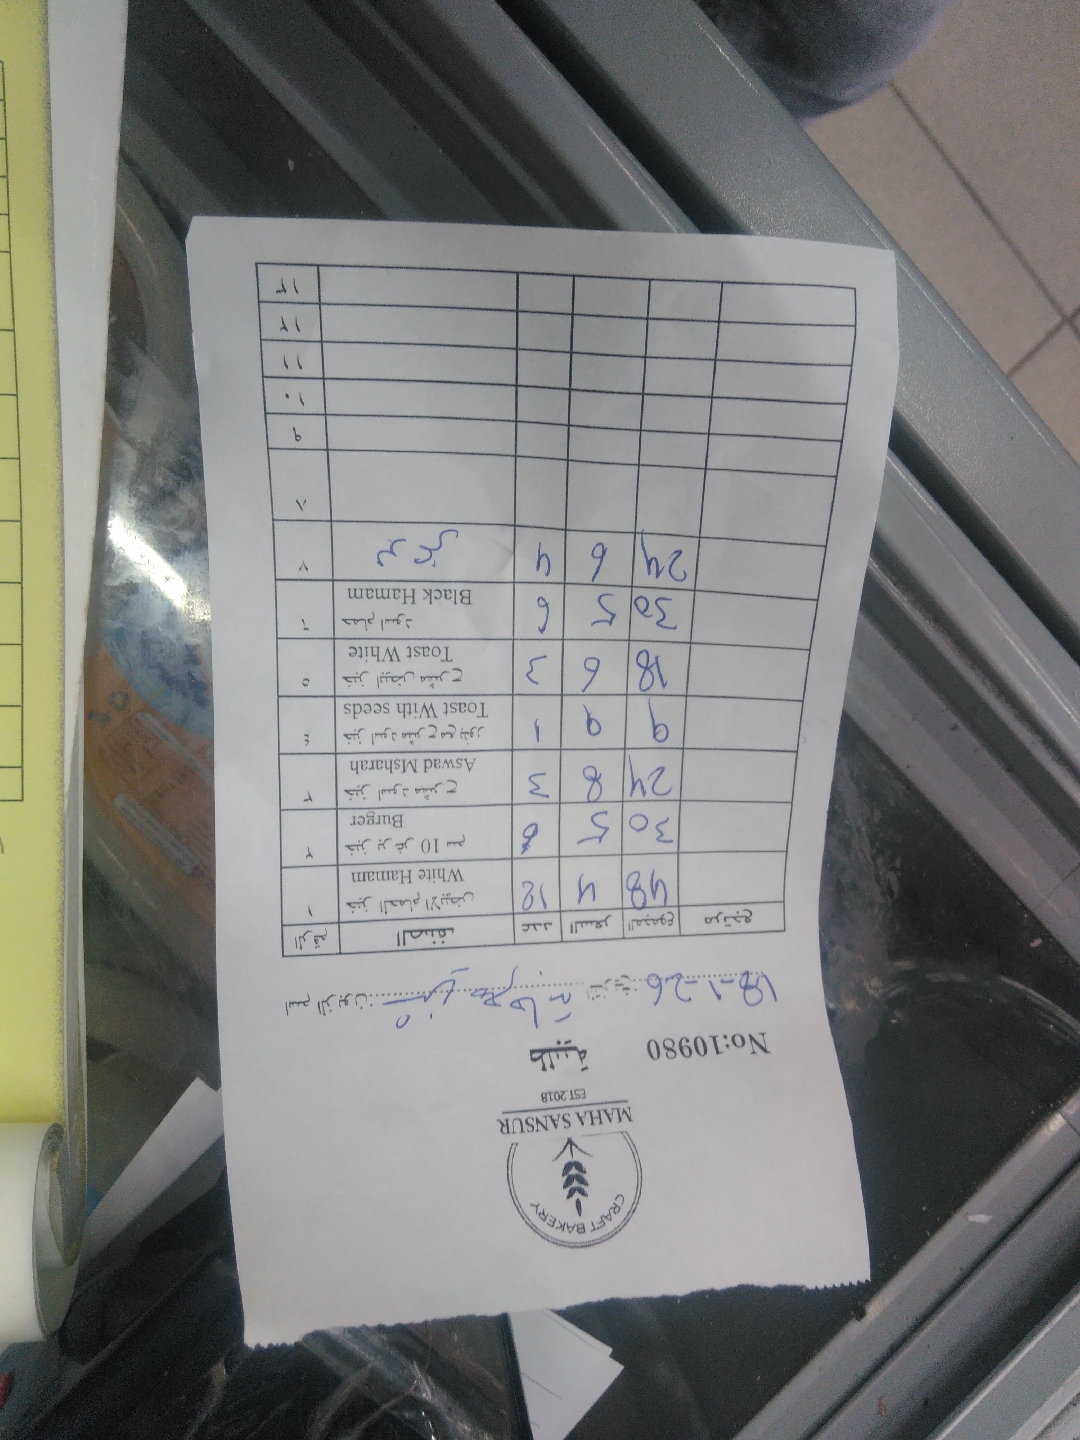 CRAFT BAKERY
MAHA SANSUR
EST.2018
طلبية
No:10980
اسم الزبون: التاريخ: 18-1-26
الرقم الصنف عدد السعر المجموع مرتجع
١ خبز الحمام الابيض White Hamam 12 4 48
٢ خبز برغر 10 سم Burger 6 5 30
٣ خبز اسود مشرح Aswad Msharah 3 8 24
٤ خبز اسود مشرح مع بذور Toast With seeds 1 9 9
٥ خبز ابيض مشرح Toast White 3 6 18
٦ حمام اسود Black Hamam 6 5 30
٧ 4 6 24
٨
٩
١٠
١١
١٢
١٣